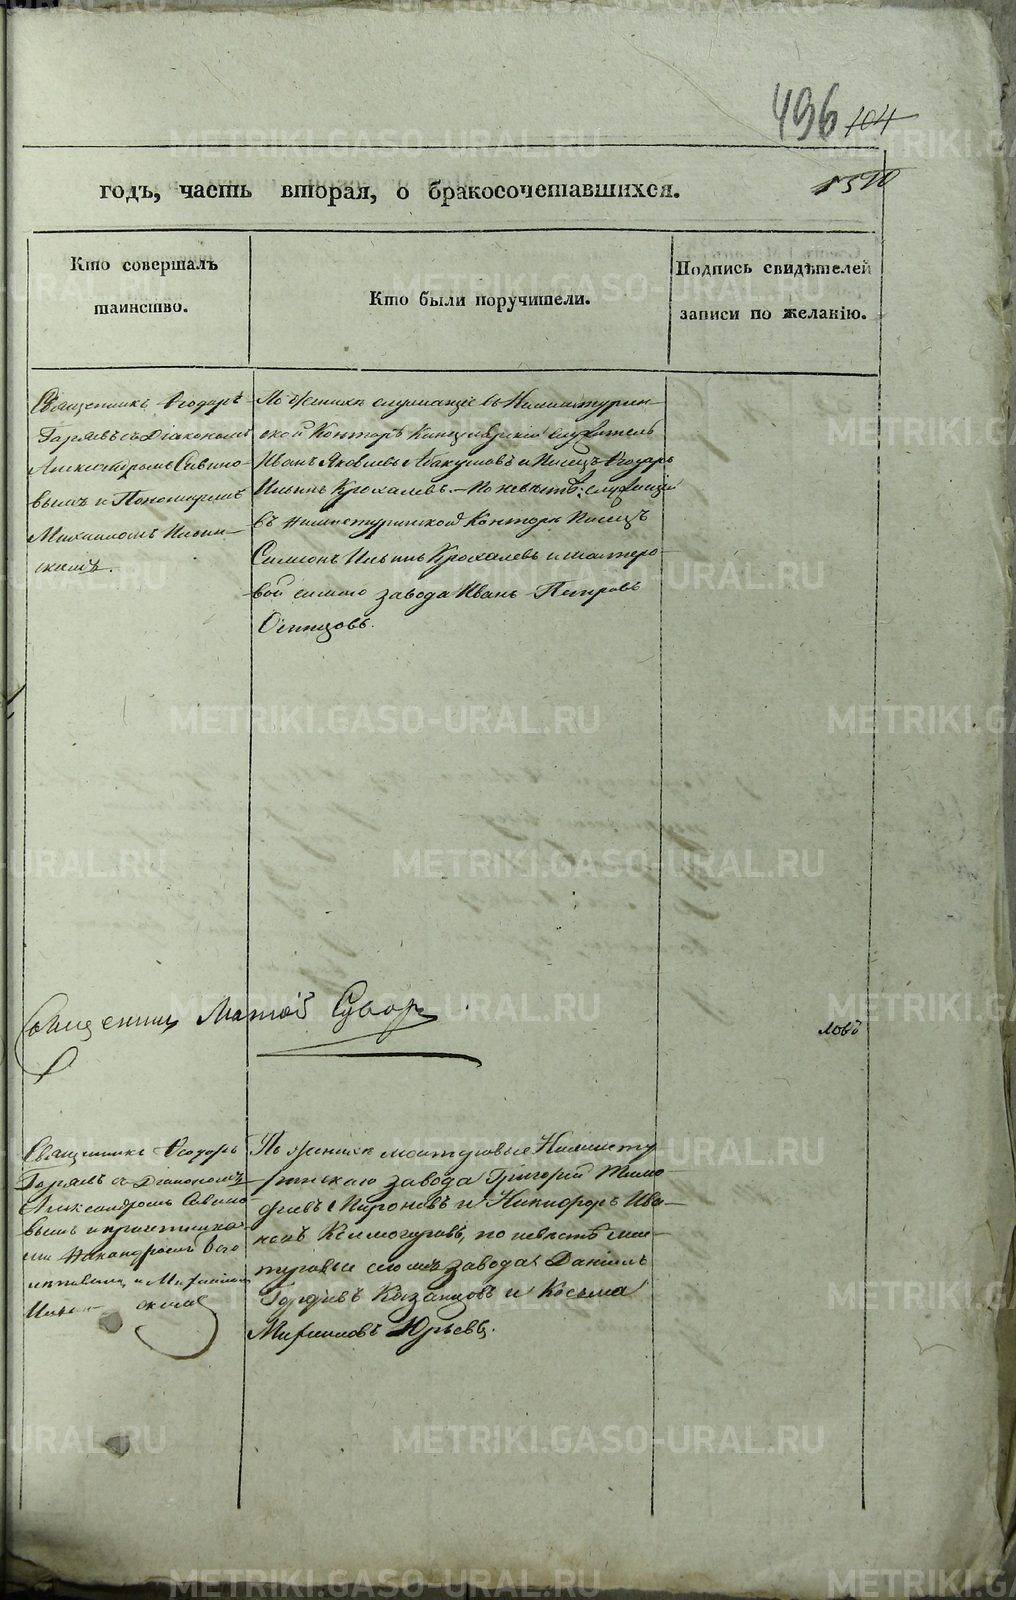 496 104
1510
годъ, часть вторая, о бракосочетавшихся.
Кто совершалъ
таинство.
Кто были поручители.
Подпись свидѣтелей
записи по желанію.
Священникъ Ѳеодоръ
съ Діакономъ
Александромъ Савино-
вымъ и Пономаремъ
Михаиломъ
скимъ.
По женихѣ служащіе въ Нижнетурин-
ской Конторѣ Канцелярскій служитель
Иванъ Яковлевъ Абакумовъ и Писецъ Ѳеодоръ
Ильинъ Крохалевъ. По невѣстѣ: служащій
въ Нижнетуринской Конторѣ Писецъ
Симеонъ Ильинъ Крохалевъ и мастеро-
вой сего завода Иванъ Петровъ
Священникъ Матѳій
ловъ
Священникъ Ѳеодоръ
съ Діакономъ
Александромъ Савино-
вымъ и причетника-
ми Никандромъ
и Михаиломъ
скимъ
По женихѣ мастеровые Нижнету-
ринскаго завода Григорій Тимо-
феевъ Мироновъ и Никифоръ Ива-
новъ по невѣстѣ мас-
теровые сего завода Даніилъ
Гордѣевъ Казанцовъ и Косьма
Михаиловъ Юрьевъ.
METRIKI.GASO-URAL.RU